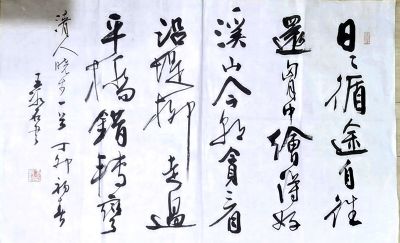 日日循途自往
還胸中繪得好
溪山今朝貪看
沿堤柳走過
平橋錯轉彎
清人晚步一首丁卯初春